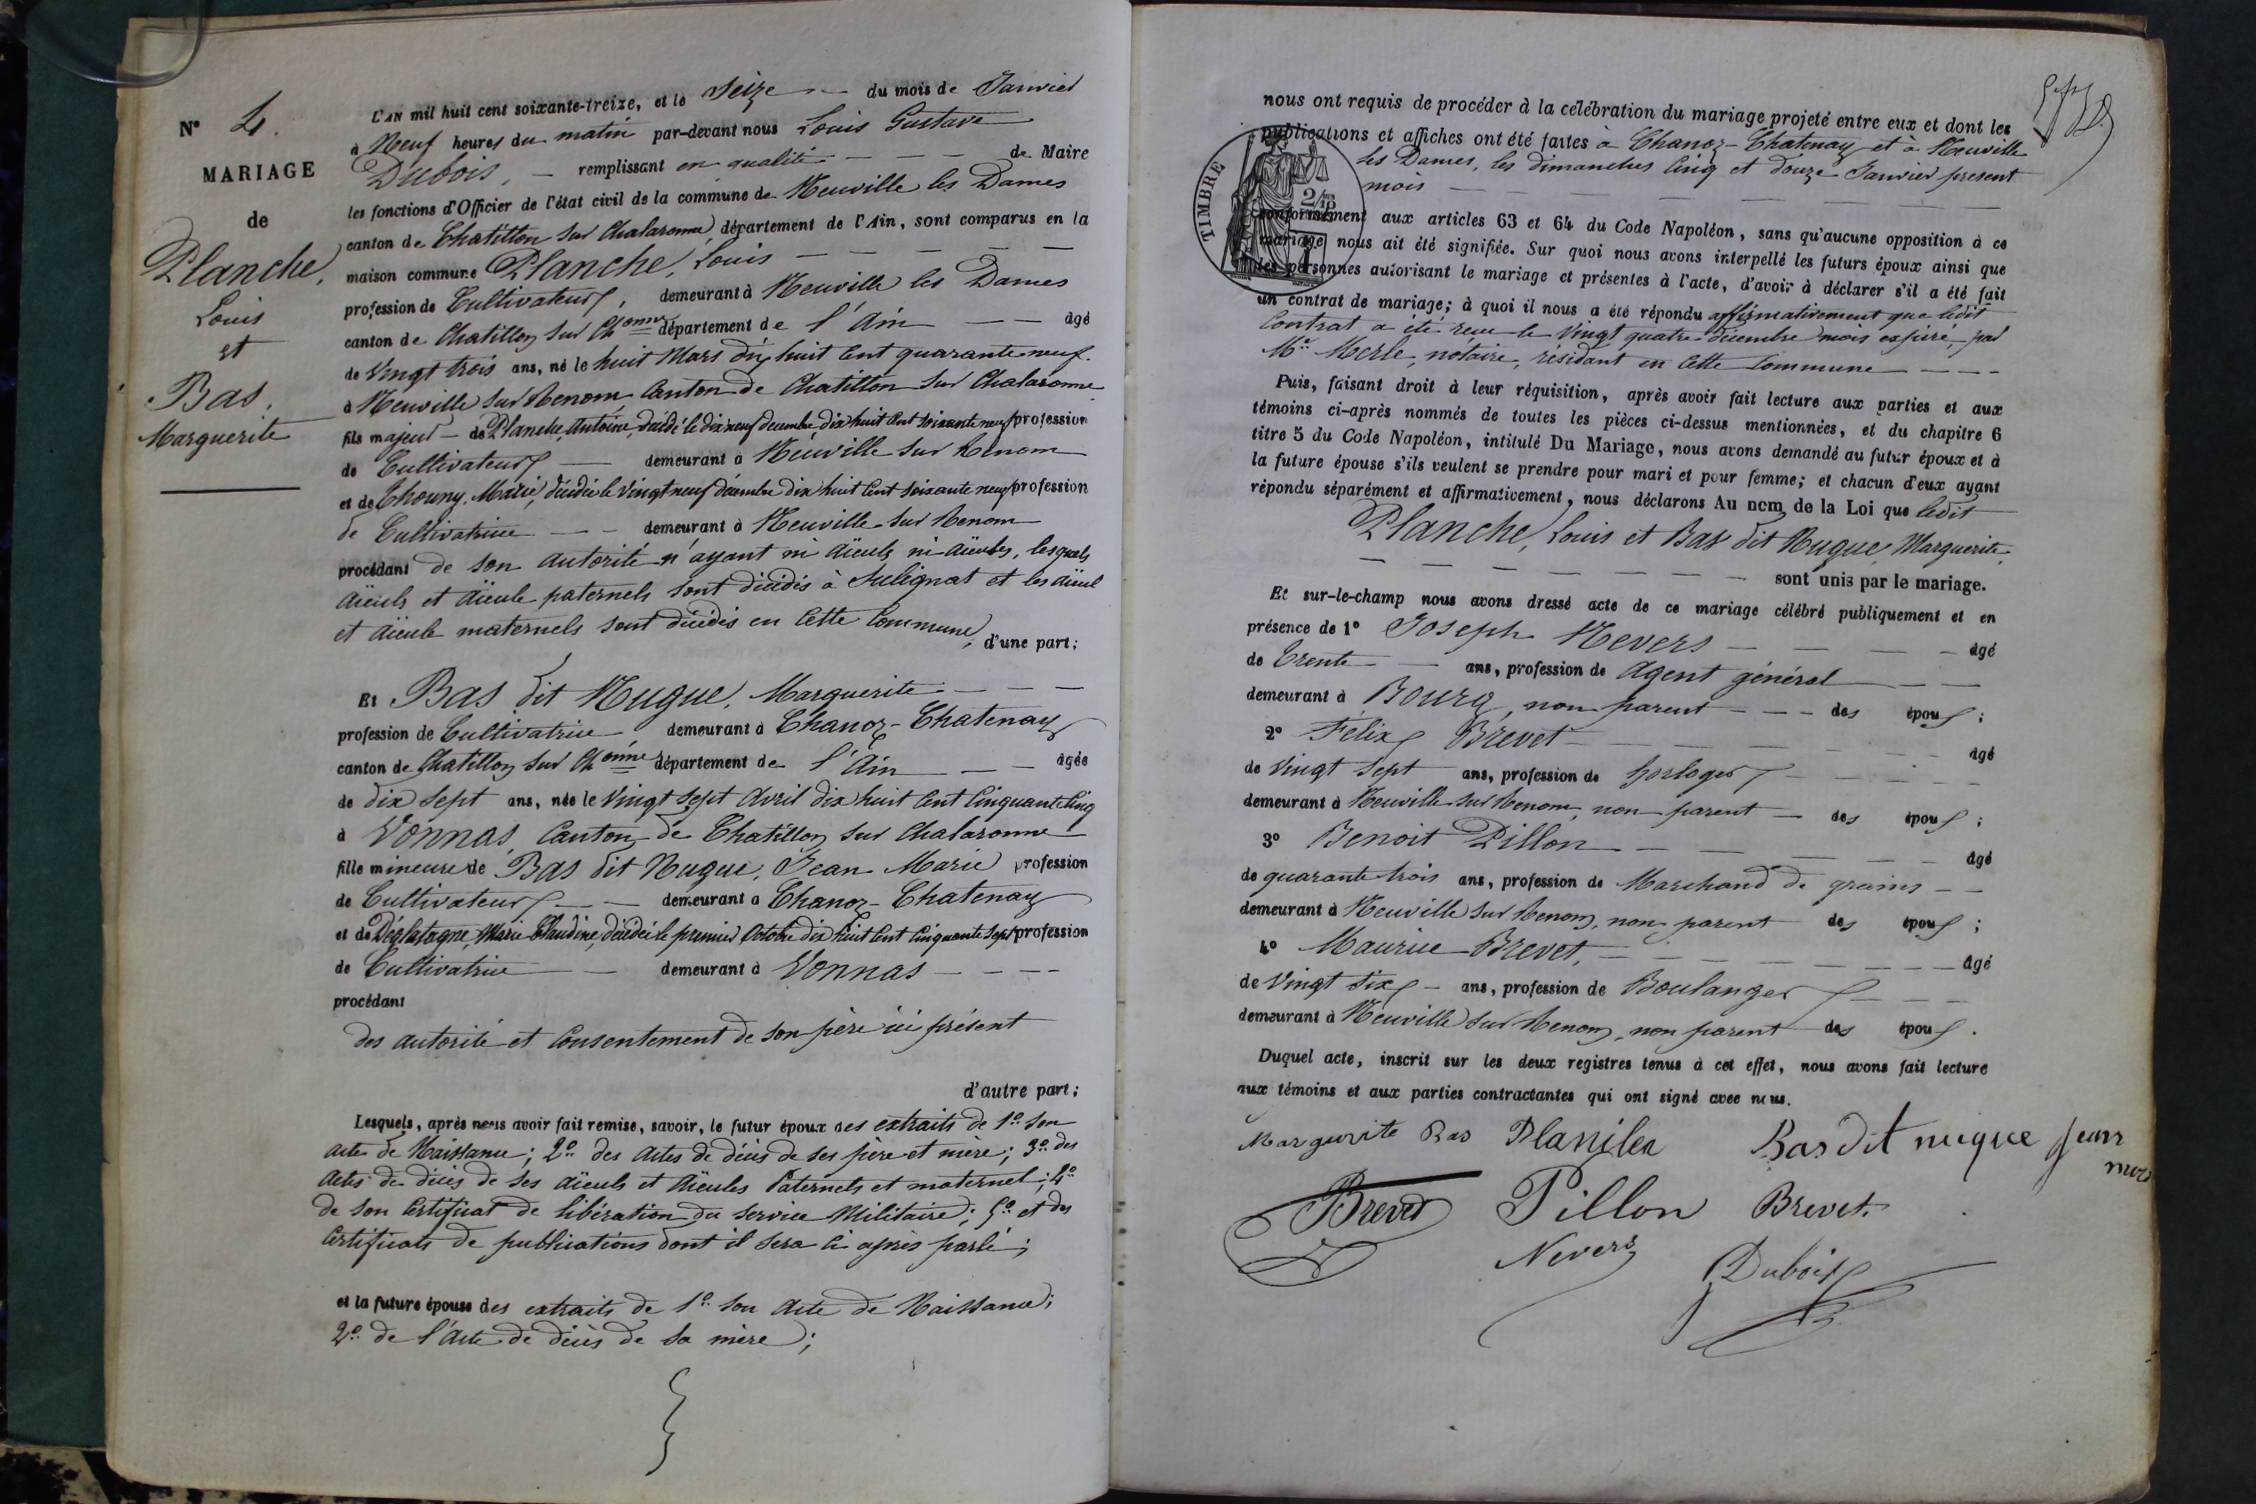 N° 4.
MARIAGE
de
Planche,
Louis
et
Bas.
Marguerite
L'AN mil huit cent soixante-treize, et le Seize du mois de Janvier
à Neuf heures du matin par-devant nous Louis Gustave
Dubois, remplissant en qualité de Maire
les fonctions d'Officier de l'état civil de la commune de Neuville les Dames
canton de Chatillon sur Chalaronne, département de l'Ain, sont comparus en la
maison commune Planche, Louis
profession de Cultivateur, demeurant à Neuville les Dames
canton de Chatillon sur Chonne département de l'Ain âgé
de Vingt trois ans, né le huit Mars dix huit cent quarante neuf.
à Neuville sur Renom, Canton de Chatillon sur Chalaronne
fils majeur de Planche, Antoine, décédé le dix neuf décembre dix huit cent soixante neuf profession
de Cultivateur demeurant à Neuville sur Renom
et de Chouny, Marie, décédée le Vingt neuf décembre dix huit cent soixante neuf profession
de Cultivatrice demeurant à Neuville sur Renom
procédant de son autorité n'ayant ni aïeuls ni aïeules, lesquels
aïeuls et aïeule paternels sont décédés à Sulignat et les aïeul
et aïeule maternels sont décédés en cette Commune, d'une part;
Et Bas dit Nugue, Marguerite
profession de Cultivatrice demeurant à Chanoz-Chatenay
canton de Chatillon sur Chonne département de l'Ain âgée
de dix sept ans, née le Vingt sept Avril dix huit cent cinquante cinq
à Vonnas, Canton de Chatillon sur Chalaronne
fille mineure de Bas dit Nugue, Jean Marie profession
de Cultivateur demeurant à Chanoz-Chatenay
et de Déglatagne, Marie Claudine, décédée le premier Octobre dix huit cent cinquante sept profession
de Cultivatrice demeurant à Vonnas
procédant
des autorité et consentement de son père ici présent
d'autre part;
Lesquels, après nous avoir fait remise, savoir, le futur époux des extraits de 1° son
acte de Naissance; 2° des actes de décès de ses père et mère; 3° des
actes de décès de ses aïeuls et aïeules Paternels et maternel; 4°
de son certificat de libération du service Militaire; 5° et des
Certificats de publications dont il sera ci après parlé;
et la future épouse des extraits de 1° son acte de Naissance;
2° de l'acte de décès de sa mère;
nous ont requis de procéder à la célébration du mariage projeté entre eux et dont les
publications et affiches ont été faites à Chanoz-Chatenay et à Neuville
les Dames, les dimanches Cinq et douze Janvier present
mois
TIMBRE
conformément aux articles 63 et 64 du Code Napoléon, sans qu'aucune opposition à ce
mariage nous ait été signifiée. Sur quoi nous avons interpellé les futurs époux ainsi que
les personnes autorisant le mariage et présentes à l'acte, d'avoir à déclarer s'il a été fait
un contrat de mariage; à quoi il nous a été répondu affirmativement que ledit
Contrat a été reçu le Vingt quatre décembre mois expiré, par
Me Merle, notaire, résidant en cette Commune
Puis, faisant droit à leur réquisition, après avoir fait lecture aux parties et aux
témoins ci-après nommés de toutes les pièces ci-dessus mentionnées, et du chapitre 6
titre 5 du Code Napoléon, intitulé Du Mariage, nous avons demandé au futur époux et à
la future épouse s'ils veulent se prendre pour mari et pour femme; et chacun d'eux ayant
répondu séparément et affirmativement, nous déclarons Au nom de la Loi que ledit
Planche, Louis et Bas dit Nugue, Marguerite,
sont unis par le mariage.
Et sur-le-champ nous avons dressé acte de ce mariage célébré publiquement et en
présence de 1° Joseph Nevers âgé
de Trente ans, profession de Agent général
demeurant à Bourg, non parent des époux;
2° Félix Brevet âgé
de Vingt Sept ans, profession de horloger
demeurant à Neuville sur Renom, non parent des époux;
3° Benoit Pillon âgé
de quarante trois ans, profession de Marchand de grains
demeurant à Neuville sur Renom, non parent des époux;
4° Maurice Brevet, âgé
de Vingt Six ans, profession de Boulanger
demeurant à Neuville sur Renom, non parent des époux.
Duquel acte, inscrit sur les deux registres tenus à cet effet, nous avons fait lecture
aux témoins et aux parties contractantes qui ont signé avec nous.
Margurite Bas Planche Bas dit nuque Jean
Brevet Pillon Brevet
Nevers Dubois